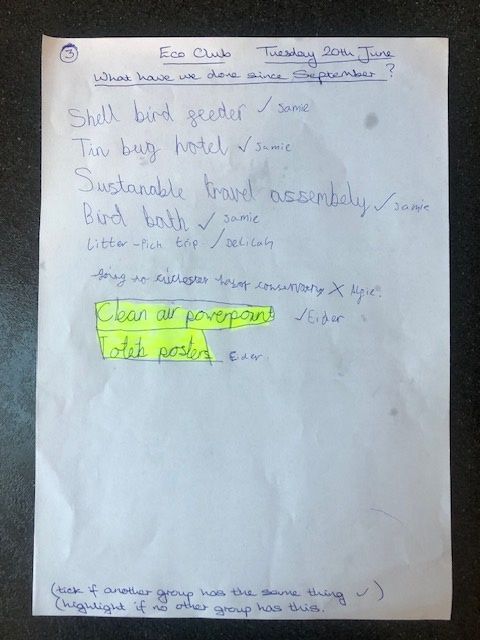 3 Eco Club Tuesday 20th June
What have we done since September?
Shell bird feeder ✓ Jamie
Tin bug hotel ✓ Jamie
Sustanable travel assembely ✓ Jamie
Bird bath ✓ Jamie
Litter-pick trip ✓ Delilah
to conservancy X
Clean air powerpoint ✓ Eider
posters Eider.
(tick if another group has the same thing ✓)
(highlight if no other group has this.